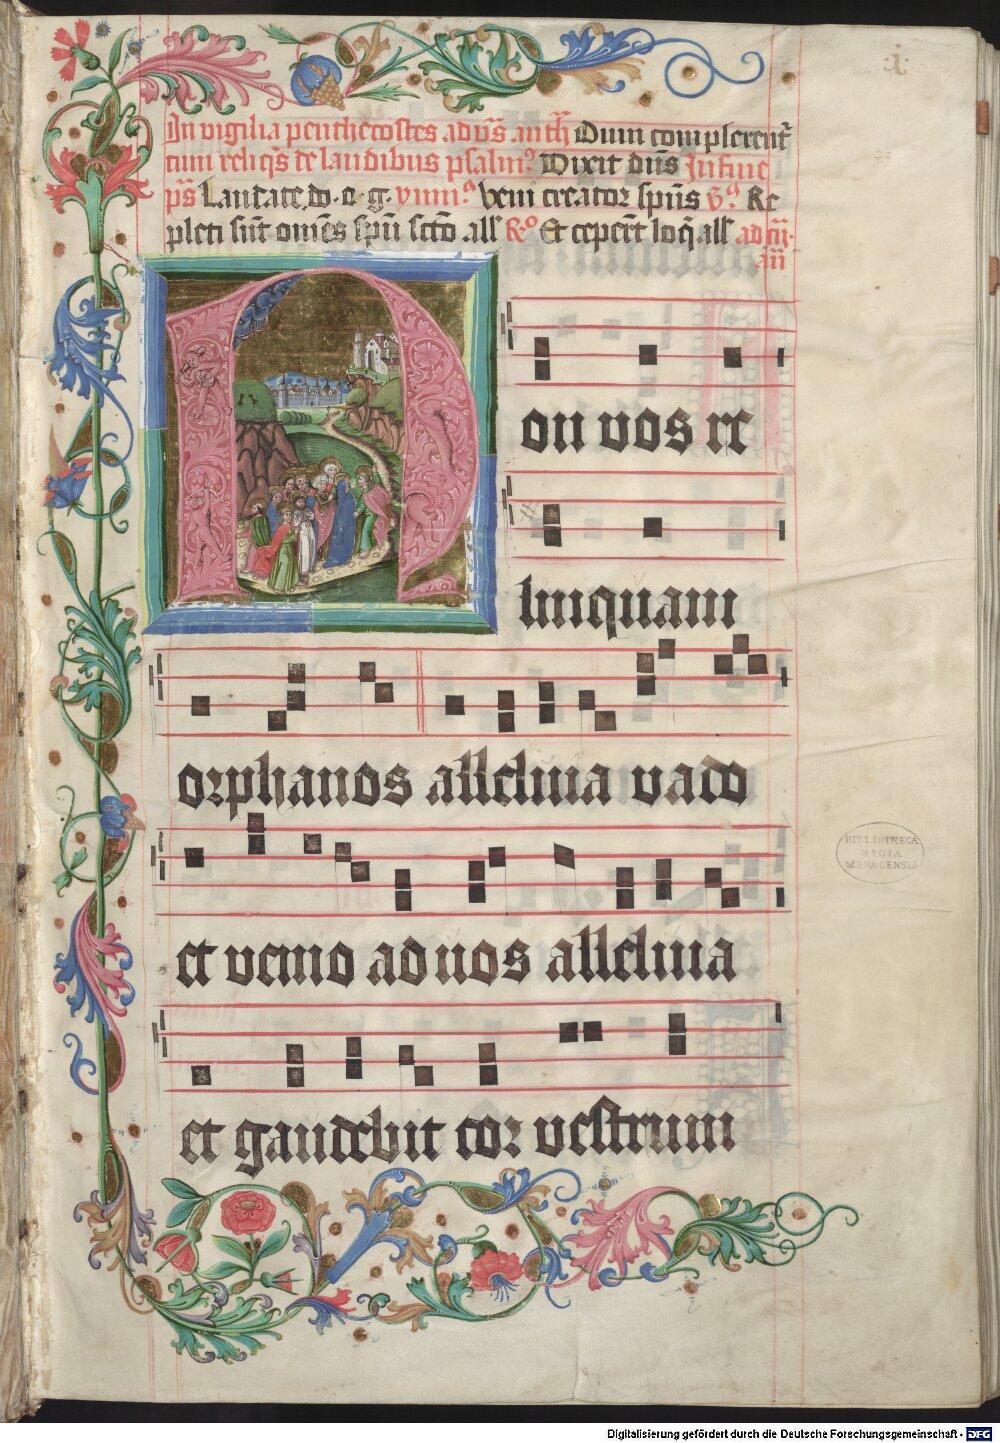 ·1·
In vigilia penthecostes ad vs̄ anth̄ Dum complerent᷑
cum reliqs̄ de laudibus psalm⁹ Dixit dn̄s In fine
ps̄ Laudate d. o. g. ymn⁹ Veni creator spūs v̄⁹ Re
pleti sūt om̄es spū scto all᷑ R⁹ Et ceper̄t loq̄ all᷑ ad m̄
an̄
Non vos re
linquam
orphanos alleluia vado
et venio ad vos alleluia
et gaudebit cor vestrum
BIBLIOTHECA
REGIA
MONACENSIS
Digitalisierung gefördert durch die Deutsche Forschungsgemeinschaft - DFG